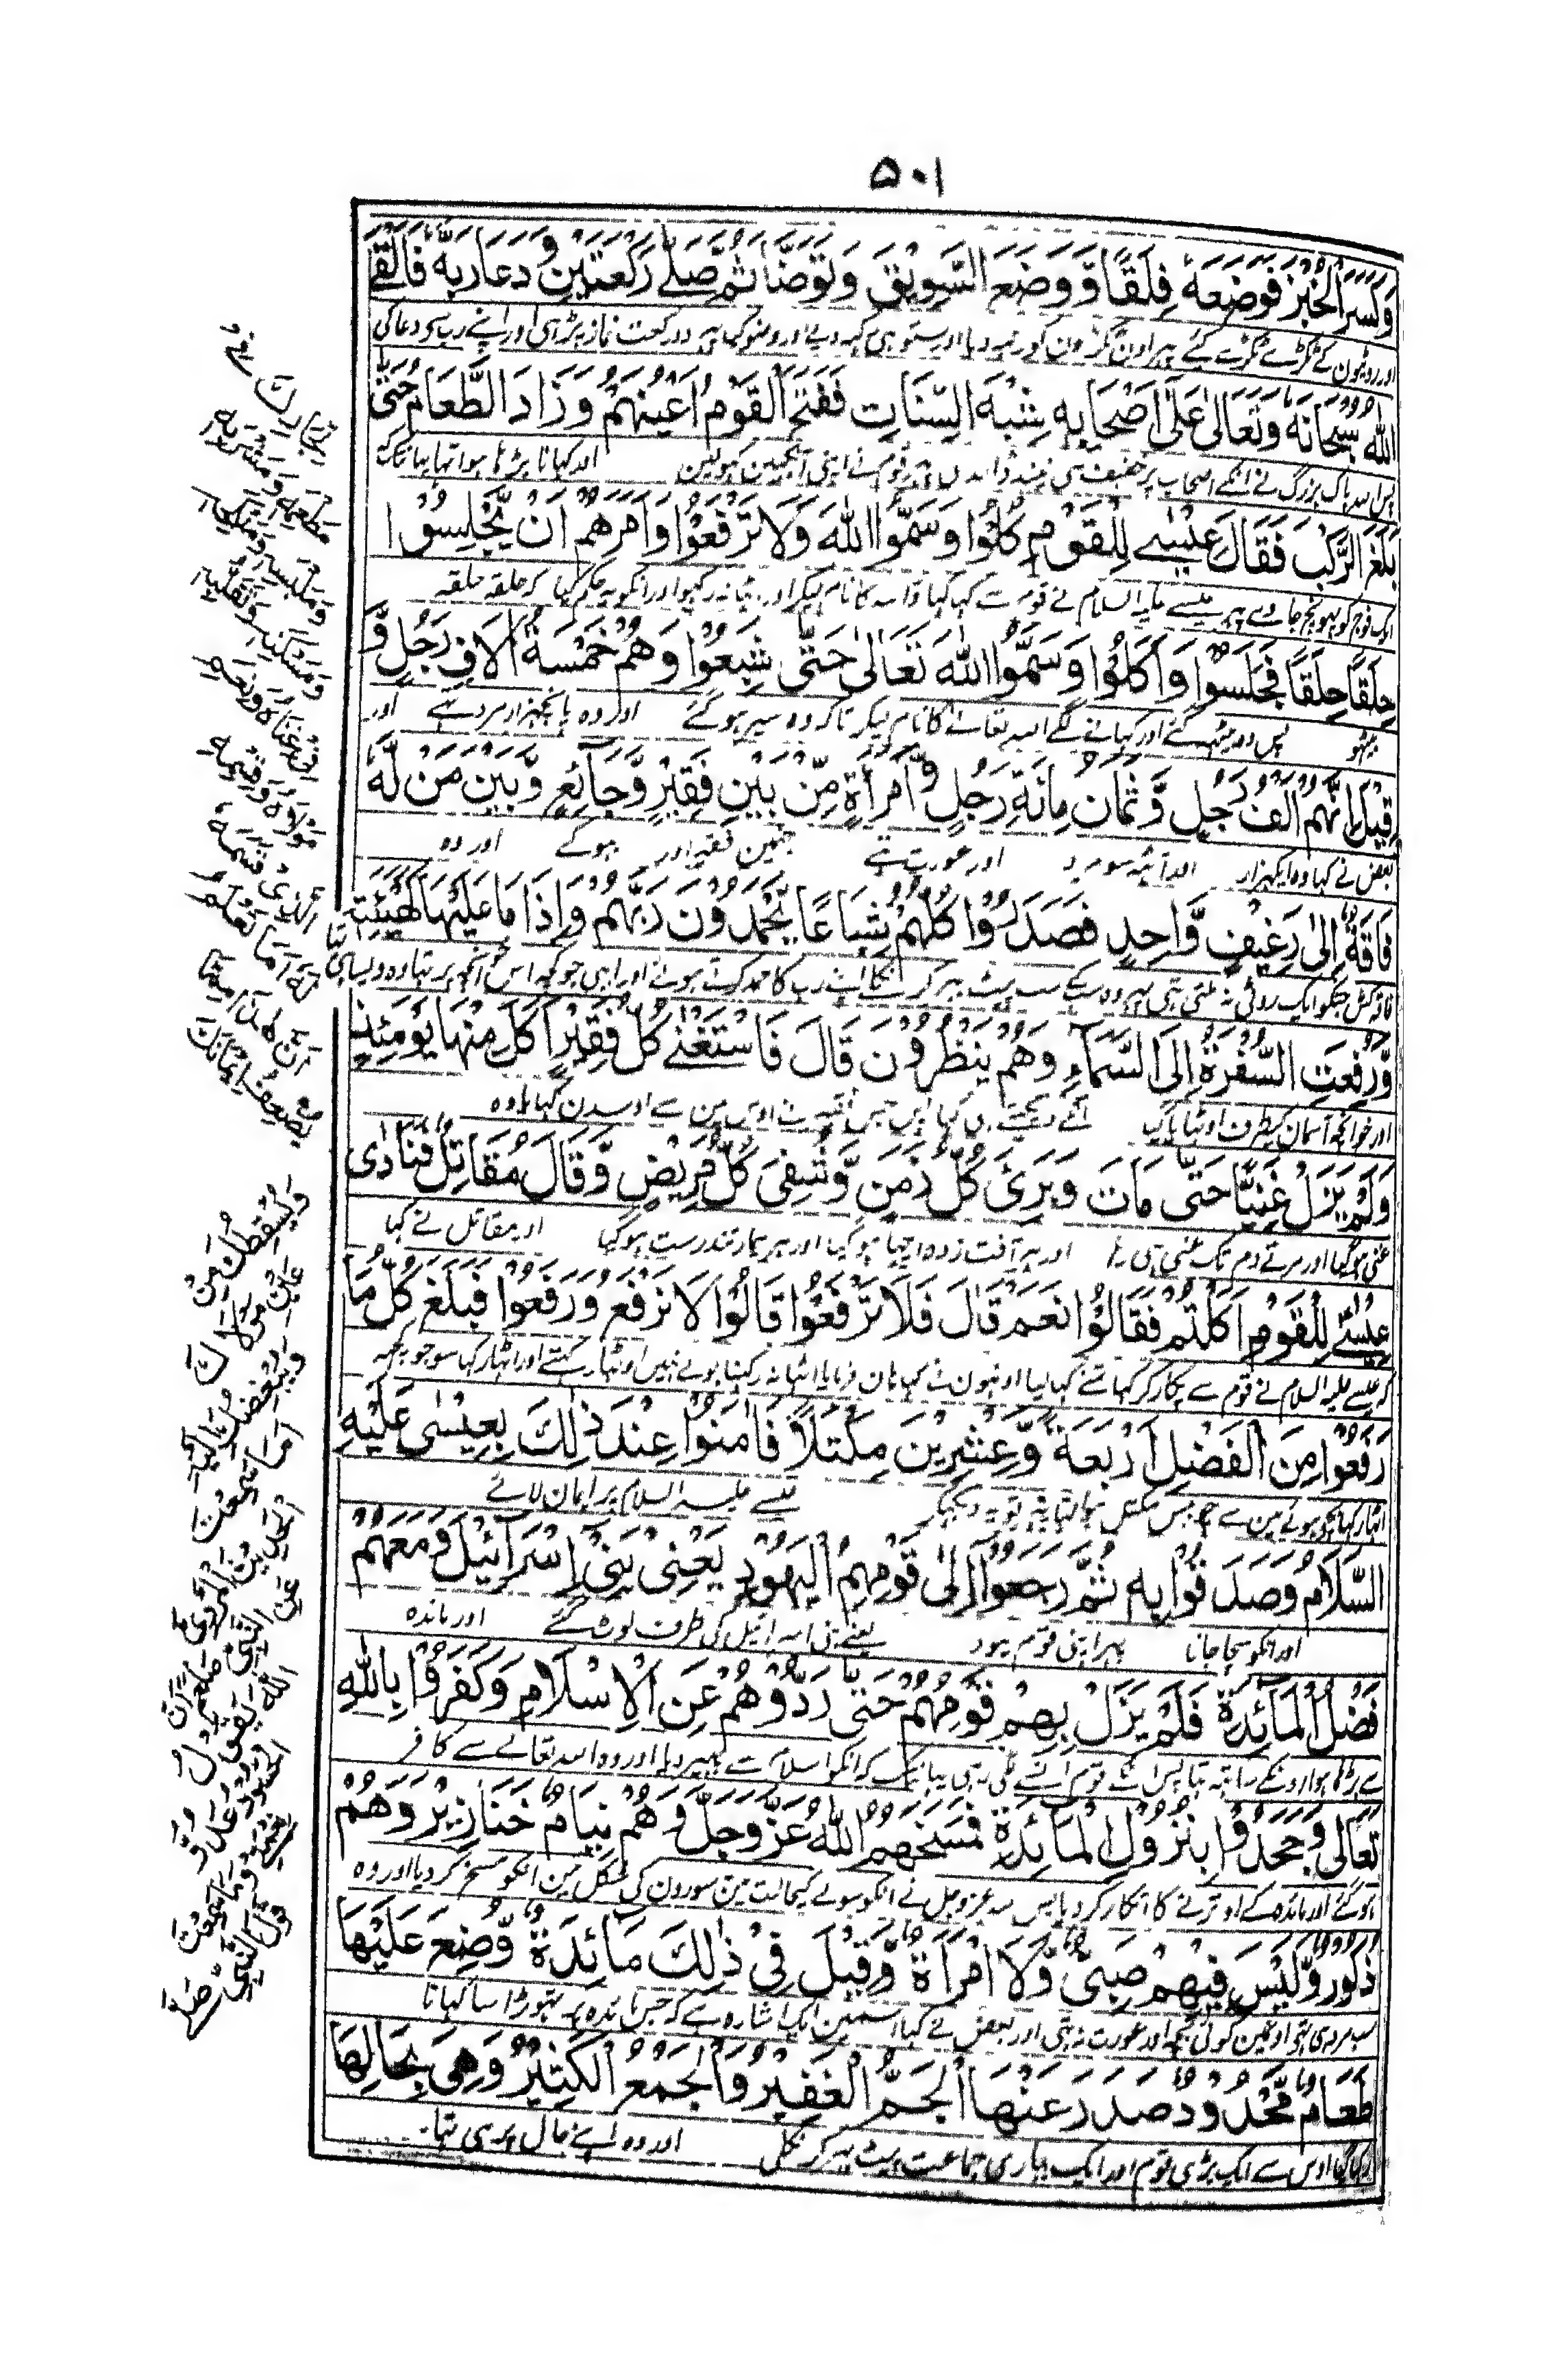 ۵۰۱
وَكَسَّرَ الْخُبْزَ فَوَضَعَهُ فِلَقًا وَّ وَضَعَ السَّوِيْقَ وَتَوَضَّأَ ثُمَّ صَلّٰے رَكْعَتَيْنِ وَ دَعَا رَبَّهٗ فَاَلْقَے
اور روٹیون کے ٹکڑے ٹکڑے کئے پہر اون ٹکڑون کو رکہدیا اور ستو بہی رکہدیے اور وضو کیا پہر دو رکعت نماز پڑہی اور اپنے رب سے دعا کی
اللهُ سُبْحَانَهُ وَتَعَالٰى عَلٰى اَصْحَابِهٖ شِبْهَ السِّنَاتِ فَفَتَحَ الْقَوْمُ اَعْيُنَهُمْ وَزَادَ الطَّعَامُ حَتّٰى
پس اللہ پاک بزرگ نے انکے اصحاب پر خفیف سی نیند ڈالدی پہر قوم نے اپنی آنکہین کہولین اور کہانا بڑہا ہوا تہا یہانتک
بَلَغَ الرَّكْبَ فَقَالَ عِيْسٰے لِلْقَوْمِ كُلُوْا وَسَمُّوا اللهَ وَلَا تَرْفَعُوْا وَاَمَرَهُمْ اَنْ يَّجْلِسُوْا
کو پہونچ جاوے پہر عیسے علیہ السلام نے قوم سے کہا کہاؤ اللہ کا نام لیکر اور اٹہا نہ رکہیو اور انکو یہ حکم کیا کہ حلقہ حلقہ
حِلَقًا حِلَقًا فَجَلَسُوْا وَاَكَلُوْا وَسَمُّوا اللهَ تَعَالٰى حَتّٰى شَبِعُوْا وَهُمْ خَمْسَةُ اٰلَافِ رَجُلٍ وَّ
بیٹہو پس وہ بیٹہہ گئے اور کہانے لگے اللہ تعالٰے کا نام لیکر تاکہ وہ سیر ہو گئے اور وہ پانچہزار مرد تہے اور
قِيْلَ اِنَّهُمْ اَلْفُ رَجُلٍ وَّ ثَمَانُ مِائَةِ رَجُلٍ وَّامْرَأَةٍ مِّنْ بَيْنِ فَقِيْرٍ وَّجَائِعٍ وَّبَيْنَ مَنْ لَّهٗ
بعض نے کہا وہ ایکہزار اور آٹہہ سو مرد اور عورت تہے جنمین فقیر اور بہوکے اور وہ
فَاقَةٌ اِلٰى رَغِيْفٍ وَّاحِدٍ فَصَدَرُوْا كُلُّهُمْ شِبَاعًا يَّحْمَدُوْنَ رَبَّهُمْ وَاِذَا مَا عَلَيْهَا كَهَيْئَتِهٖ
فاقہ کش جنکو ایک روٹی نہ ملتی تہی پہر وہ سب کے سب پیٹ بہر کر نکلے اپنے رب کا حمد کرتے ہوئے اور ابہی جو کچہ اس خوانچہ پر تہا وہ ویسا ہی تہا
وَّرُفِعَتِ السُّفْرَةُ اِلَى السَّمَاءِ وَهُمْ يَنْظُرُوْنَ قَالَ فَاسْتَغْنٰے كُلُّ فَقِيْرٍ اَكَلَ مِنْهَا يَوْمَئِذٍ
اور خوانچہ آسمان کیطرف اوٹہایا گیا انکے دیکہتے ہی کہا پس جس فقیر نے اوس مین سے اوسدن کہایا وہ
وَلَمْ يَزَلْ غَنِيًّا حَتّٰى مَاتَ وَبَرِئَ كُلُّ زَمِنٍ وَّشُفِيَ كُلُّ مَرِيْضٍ وَّقَالَ مُقَاتِلٌ فَنَادٰى
غنی ہو گیا اور مرتے دم تک غنی ہی رہا اور ہر آفت زدہ اچہا ہو گیا اور ہر بیمار تندرست ہو گیا اور مقاتل نے کہا
عِيْسٰے لِلْقَوْمِ اَكَلْتُمْ فَقَالُوْا نَعَمْ قَالَ فَلَا تَرْفَعُوْا قَالُوْا لَا نَرْفَعُ وَرَفَعُوْا فَبَلَغَ كُلُّ مَا
کہ عیسے علیہ السلام نے قوم سے پکار کر کہا تمنے کہا لیا اونہون نے کہا ہان فرمایا اٹہا نہ رکہنا بولے نہین اوٹہا رکہتے اور اٹہا رکہا سو جو کچہہ
رَفَعُوْا مِنَ الْفَضْلِ اَرْبَعَةً وَّعِشْرِيْنَ مِكْتَلًا فَاٰمَنُوْا عِنْدَ ذٰلِكَ بِعِيْسٰى عَلَيْهِ
اٹہا رکہا بچے ہوئے مین سے چوبیس مکتل ہو گیا یہ دیکہکر عیسے علیہ السلام پر ایمان لائے
السَّلَامُ وَصَدَّقُوْا بِهٖ ثُمَّ رَجَعُوْا اِلٰى قَوْمِهِمُ الْيَهُوْدِ يَعْنِىْ بَنِىْ اِسْرَائِيْلَ وَمَعَهُمْ
اور انکو سچا جانا پہر اپنی قوم یہود یعنے بنی اسرائیل کی طرف لوٹ گئے اور مائدہ
فَضْلُ الْمَائِدَةِ فَلَمْ يَزَلْ بِهِمْ قَوْمُهُمْ حَتّٰى رَدُّوْهُمْ عَنِ الْاِسْلَامِ وَكَفَرُوْا بِاللهِ
سے بڑہا ہوا اونکے ساتہہ تہا پس انکی قوم ان سے ملی رہی یہانتک کہ انکو اسلام سے پہیر دیا اور وہ اللہ تعالےٰ سے کافر
تَعَالٰى وَجَحَدُوْا بِنُزُوْلِ الْمَائِدَةِ فَمَسَخَهُمُ اللهُ عَزَّ وَجَلَّ وَهُمْ نِيَامٌ خَنَازِيْرَ وَهُمْ
ہو گئے اور مائدہ کے اوترنے کا انکار کر دیا پس اللہ عز و جل نے انکو سونے کیحالت مین سورون کی شکل مین انکو مسخ کر دیا اور وہ
ذُكُوْرٌ وَّلَيْسَ فِيْهِمْ صَبِىٌّ وَّلَا امْرَأَةٌ وَّقِيْلَ فِىْ ذٰلِكَ مَائِدَةٌ وُّضِعَ عَلَيْهَا
سب مرد ہی تہے اونمین کوئی بچہ اور عورت نہ تہی اور بعض نے کہا اسمین ایک اشارہ ہے کہ جس مائدہ پر تہوڑا سا کہانا
طَعَامٌ مَّحْدُوْدٌ صَدَرَ عَنْهَا الْجَمُّ الْغَفِيْرُ وَالْجَمْعُ الْكَثِيْرُ وَهِىَ بِحَالِهَا
رکہا گیا اوس سے ایک بڑی قوم اور ایک بہاری جماعت پیٹ بہر کر نکل اور وہ اپنے حال پر ہی تہا۔
يُبَارِكَ فِىْ
مَطْعَمِهٖ وَمَشْرَبِهٖ
وَمَلْبَسِهٖ
وَمَسْكَنِهٖ
مَوْلَاهُ وَقِسْمِهٖ
الَّذِىْ قَسَمَهٗ
لَهٗ اَمَا تَعْلَمُ
اَنَّ هٰذَا مِمَّا
يُضْعِفُ اِيْمَانَكَ
وَيُسْقِطُكَ مِنْ
عَيْنِ مَوْلَاكَ
وَيُبْغِضُكَ اِلَيْهِ
اَمَا سَمِعْتَ
عَنِ النَّبِىِّ صلعم اَنَّ
اللهَ يَقُوْلُ
الْحَسُوْدُ عَدُوُّ
نِعْمَتِىْ وَمَا سَمِعْتَ
قَوْلَ النَّبِىِّ صلعم